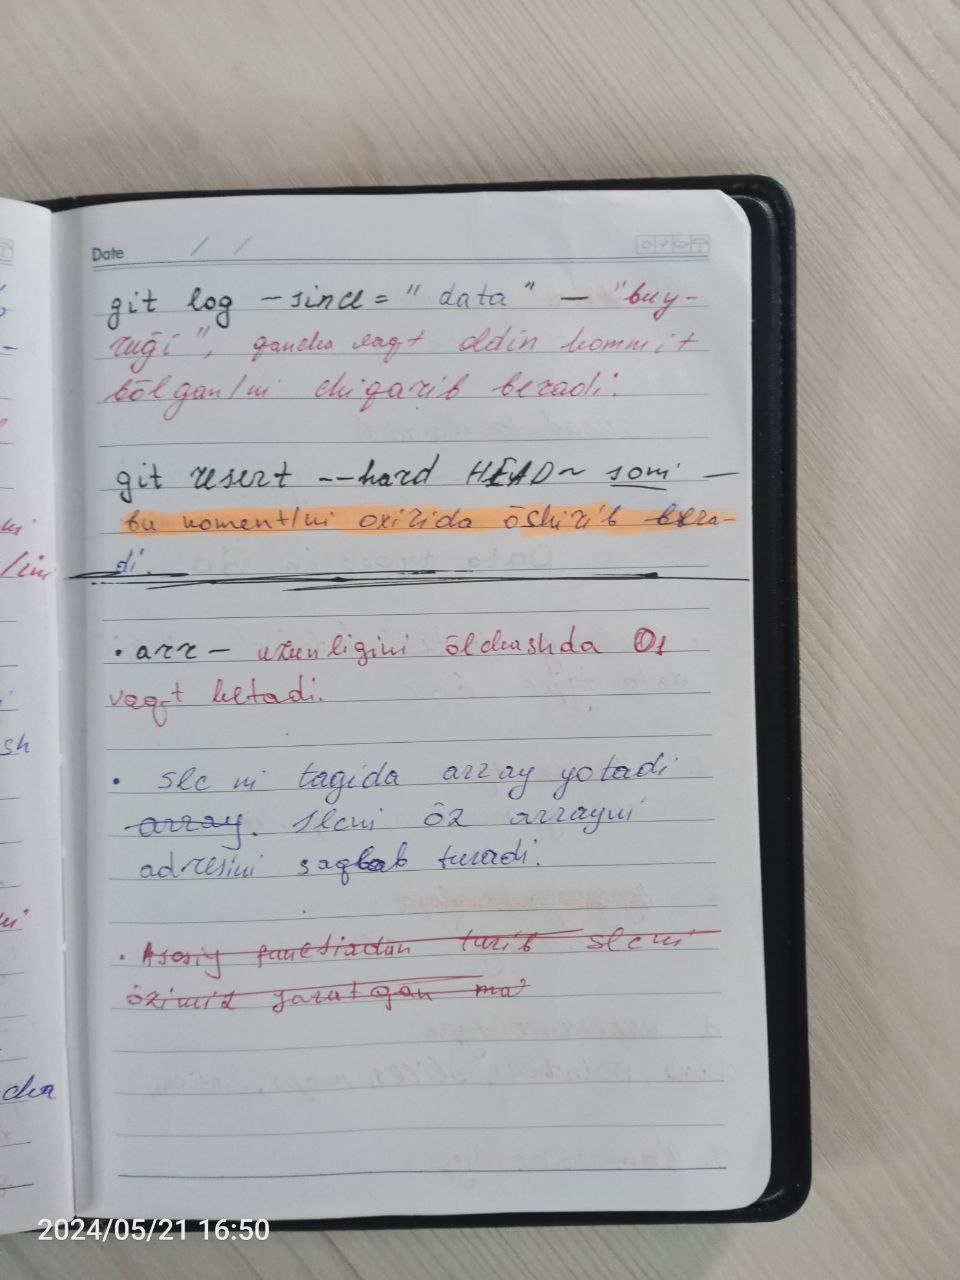 Date / /
git log -since = " data " — "buy-
ruği", qancha vaqt oldin kommit
bõlgan/ni chiqarib beradi.
git resert --hard HEAD~ soni —
bu koment/ni oxirida õshirib bera-
di.
• arr – uzunligini õlchashda O1
vaqt ketadi.
• slc ni tagida array yotadi
array. slcni õz arrayni
adresini saqlab turadi.
• Asosiy functiadan turib slcni
õzimiz yaratgan
sh
cha
2024/05/21 16:50